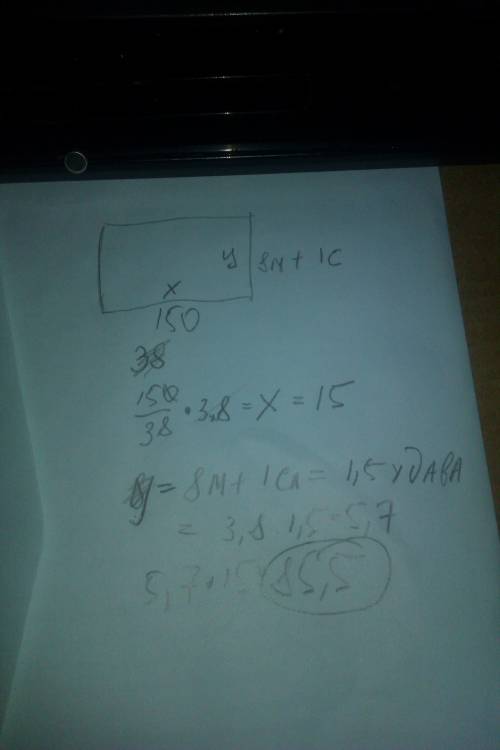 y 8м + 1С
x
150
38
150/38 · 3,8 = X = 15
y = 8м + 1сл = 1,5 удава
= 3,8 · 1,5 = 5,7
5,7 · 15 = 85,5